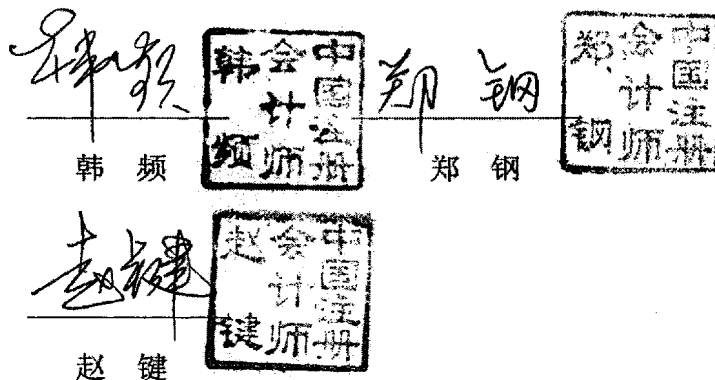 韩频
中国注册会计师
韩频
郑钢
中国注册会计师
郑钢
韩 频
郑 钢
赵键
中国注册会计师
赵键
赵 键